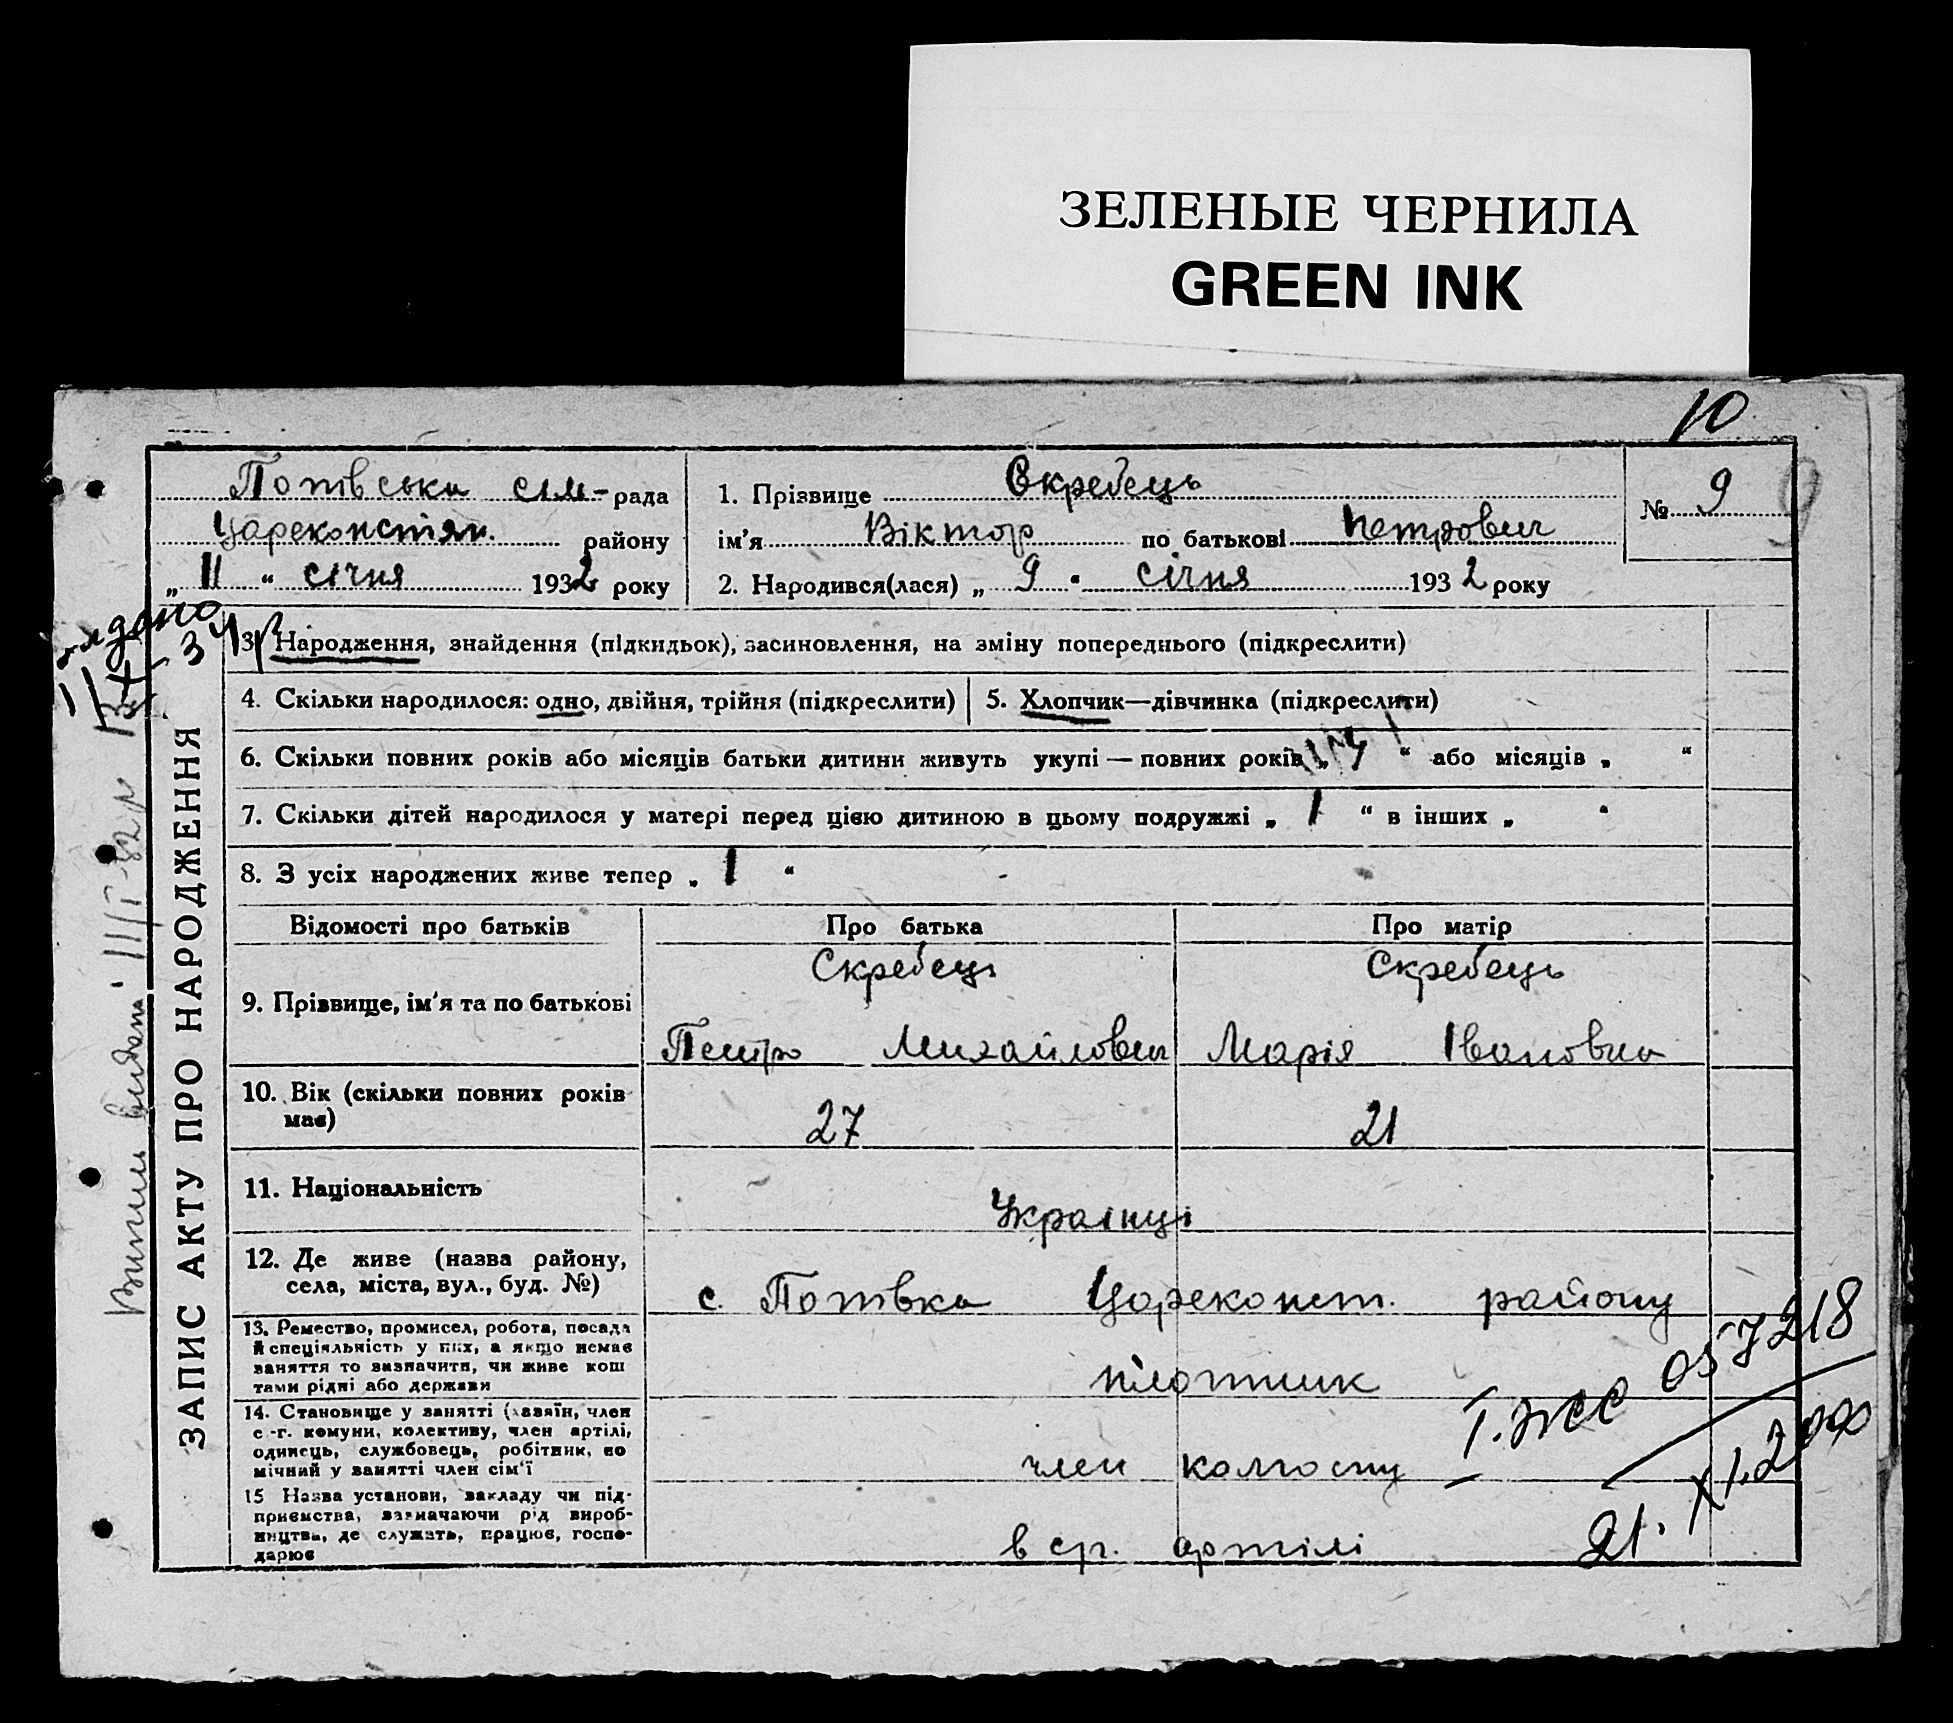 ЗЕЛЕНЫЕ ЧЕРНИЛА
GREEN INK
10
Попівська сіл-рада
Царекопстян. району
„ 11 “ січня 1932 року
1. Прізвище Скребець
ім’я Віктор по батькові Петрович
2. Народився(лася) „ 9 “ січня 1932 року
№ 9
9
ЗАПИС АКТУ ПРО НАРОДЖЕННЯ
3. Народження, знайдення (підкидьок), засиновлення, на зміну попереднього (підкреслити)
4. Скільки народилося: одно, двійня, трійня (підкреслити)
5. Хлопчик—дівчинка (підкреслити)
6. Скільки повних років або місяців батьки дитини живуть укупі — повних років „ “ або місяців „ “
7. Скільки дітей народилося у матері перед цією дитиною в цьому подружжі „ 1 “ в інших „ “
8. З усіх народжених живе тепер „ 1 “
Відомості про батьків
Про батька
Про матір
9. Прізвище, ім’я та по батькові
Скребець
Петро Михайлович
Скребець
Марія Івановна
10. Вік (скільки повних років
має)
27
21
11. Національність
Українці
12. Де живе (назва району,
села, міста, вул., буд. №)
с. Попівка Цареконст. району
13. Ремество, промисел, робота, посада
й спеціяльність у них, а якщо немає
заняття то визначити, чи живе кош
тами рідні або держави
плотник
14. Становище у занятті (хазяїн, член
с.-г. комуни, колективу, член артілі,
одинець, службовець, робітник, по
мічний у занятті член сім’ї
член колгоспу
15 Назва установи, закладу чи під-
приємства, зазначаючи рід вироб-
ництва, де служать, працює, госпо-
дарює
в ср. артілі
І.ЖС 057218
21. XI.2000